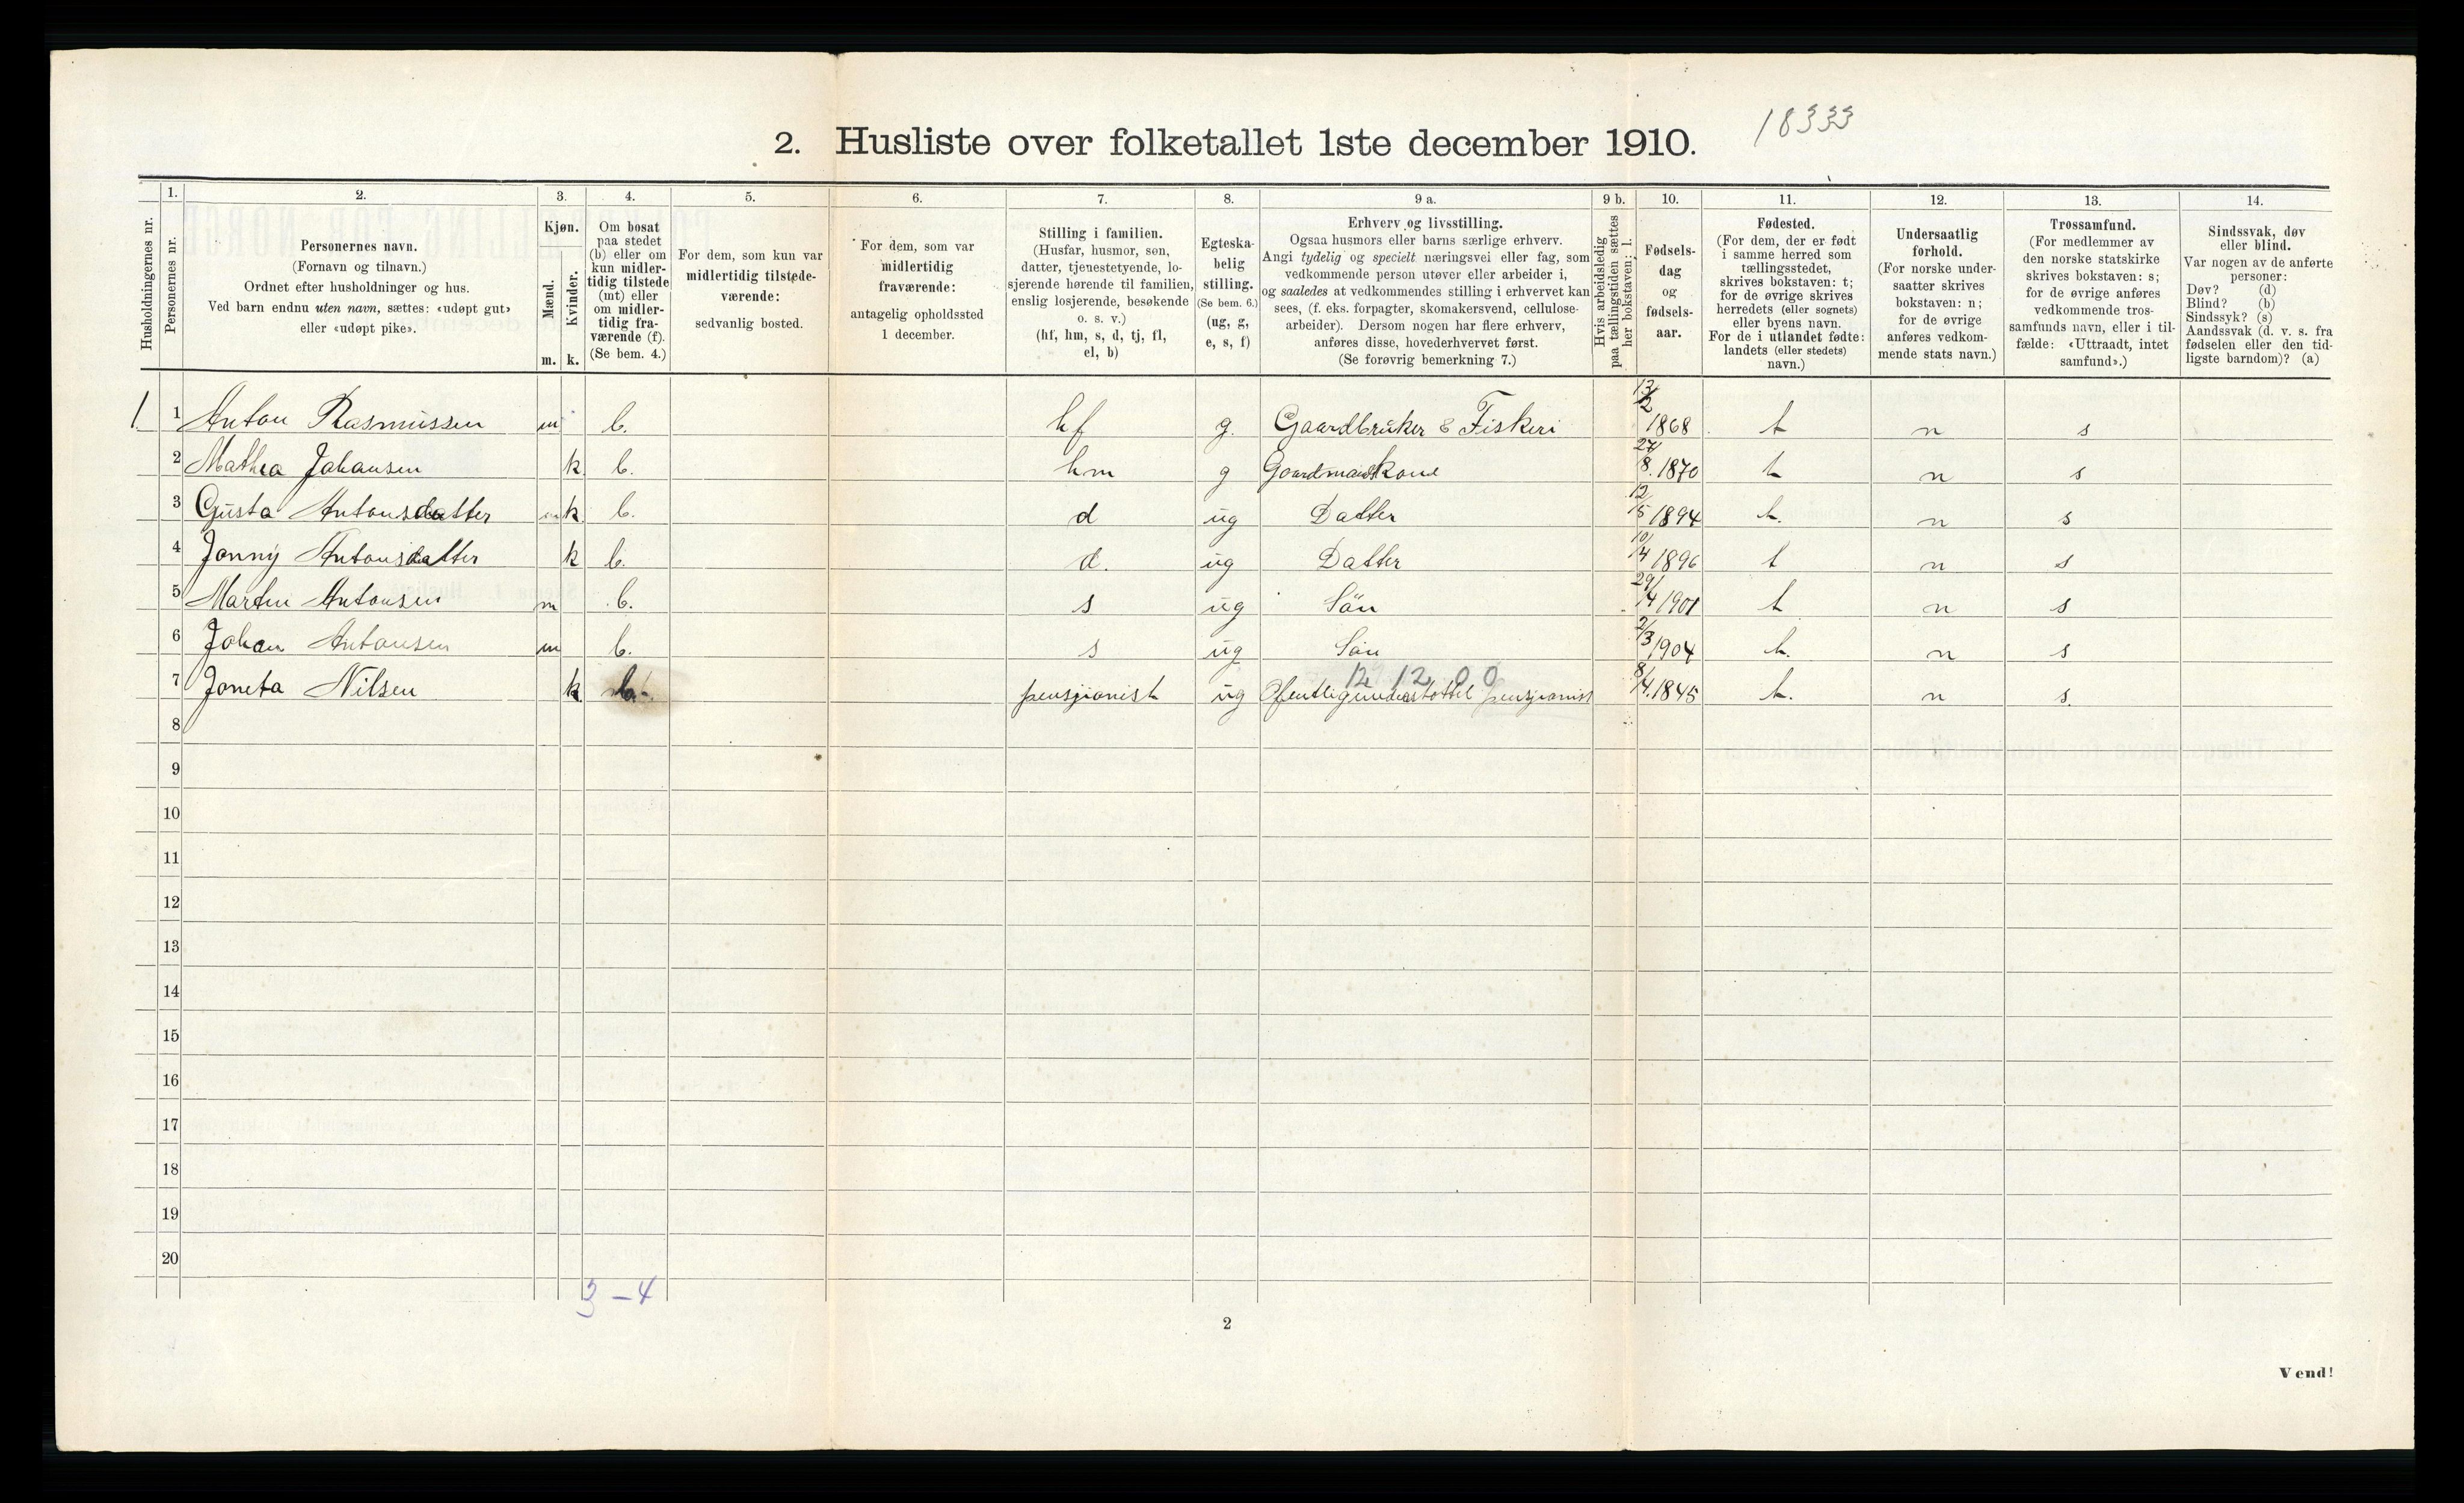 18333
2. Husliste over folketallet 1ste december 1910.
1. 2. 3. 4. 5. 6. 7. 8. 9 a. 9 b. 10. 11. 12. 13. 14.
Husholdningernes nr.
Personernes nr.
Personernes navn.
(Fornavn og tilnavn.)
Ordnet efter husholdninger og hus.
Ved barn endnu uten navn, sættes: «udøpt gut»
eller «udøpt pike».
Kjøn.
Mænd.
m.
Kvinder.
k.
Om bosat
paa stedet
(b) eller om
kun midler-
tidig tilstede
(mt) eller
om midler-
tidig fra-
værende (f).
(Se bem. 4.)
For dem, som kun var
midlertidig tilstede-
værende:
sedvanlig bosted.
For dem, som var
midlertidig
fraværende:
antagelig opholdssted
1 december.
Stilling i familien.
(Husfar, husmor, søn,
datter, tjenestetyende, lo-
sjerende hørende til familien,
enslig losjerende, besøkende
o. s. v.)
(hf, hm, s, d, tj, fl,
el, b)
Egteska-
belig
stilling.
(Se bem. 6.)
(ug, g,
e, s, f)
Erhverv og livsstilling.
Ogsaa husmors eller barns særlige erhverv.
Angi tydelig og specielt næringsvei eller fag, som
vedkommende person utøver eller arbeider i,
og saaledes at vedkommendes stilling i erhvervet kan
sees, (f. eks. forpagter, skomakersvend, cellulose-
arbeider). Dersom nogen har flere erhverv,
anføres disse, hovederhvervet først.
(Se forøvrig bemerkning 7.)
Hvis arbeidsledig
paa tællingstiden sættes
her bokstaven: l.
Fødsels-
dag
og
fødsels-
aar.
Fødested.
(For dem, der er født
i samme herred som
tællingsstedet,
skrives bokstaven: t;
for de øvrige skrives
herredets (eller sognets)
eller byens navn.
For de i utlandet fødte:
landets (eller stedets)
navn.)
Undersaatlig
forhold.
(For norske under-
saatter skrives
bokstaven: n;
for de øvrige
anføres vedkom-
mende stats navn.)
Trossamfund.
(For medlemmer av
den norske statskirke
skrives bokstaven: s;
for de øvrige anføres
vedkommende tros-
samfunds navn, eller i til-
fælde: «Uttraadt, intet
samfund».)
Sindssvak, døv
eller blind.
Var nogen av de anførte
personer:
Døv? (d)
Blind? (b)
Sindssyk? (s)
Aandssvak (d. v. s. fra
fødselen eller den tid-
ligste barndom)? (a)
1. 1 Anton Rasmussen m b. hf g. Gaardbruker & Fiskeri 13/2 1868 t n s
2 Mathea Johansen k. b. hm g Gaardmandskone 27/8. 1870 t n s
3 Gusta Antonsdatter k. b. d ug Datter 12/5 1894 t. n s
4 Jonny Antonsdatter k b. d. ug Datter 10/4 1896 t n s
5 Martin Antonsen m b. s ug Sön 29/4 1901 t n s
6 Johan Antonsen m b. s ug Sön 2/3 1904 t. n s
12 12 0 0
7 Joneta Nilsen k b. pensjonist ug Ofentlig understöttet pensjonist 8/4. 1845 t. n s.
8
9
10
11
12
13
14
15
16
17
18
19
20
3 - 4
2
Vend!